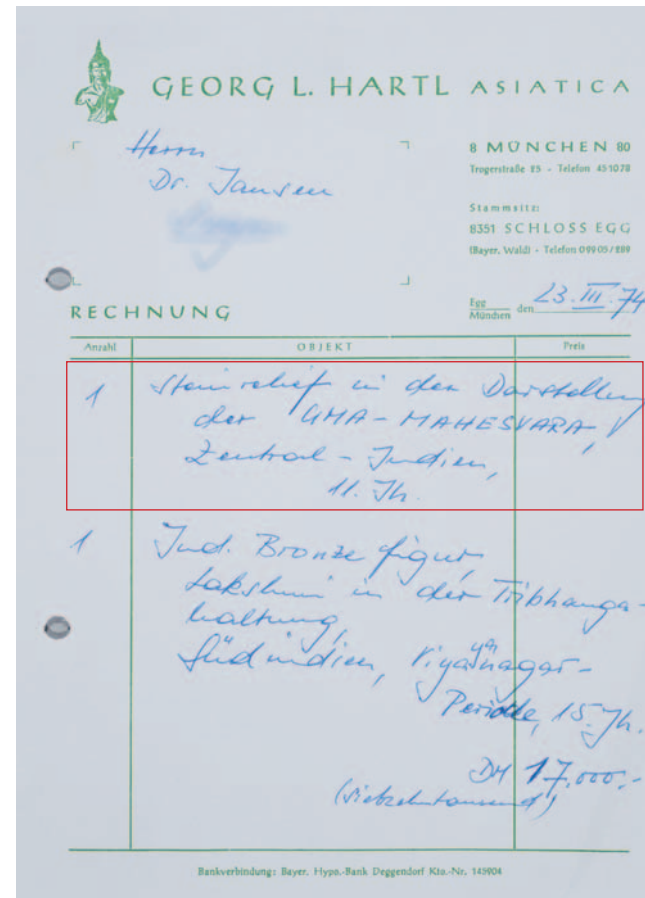 GEORG L. HARTL ASIATICA
Herrn
Dr. Jansen
8 MÜNCHEN 80
Trogerstraße 25 - Telefon 451078
Stammsitz:
8351 SCHLOSS EGG
(Bayer. Wald) - Telefon 09905/289
RECHNUNG
Egg
München den 23. III. 74
Anzahl OBJEKT Preis
1 Steinrelief in der Darstellung
der UMA-MAHESVARA,
Zentral-Indien,
11. Jh.
1 Ind. Bronze figur,
Lakshmi in der Tribhanga-
haltung,
Südindien,
Periode, 15. Jh.
DM 17.000.-
(siebzehntausend)
Bankverbindung: Bayer. Hypo.-Bank Deggendorf Kto.-Nr. 145904